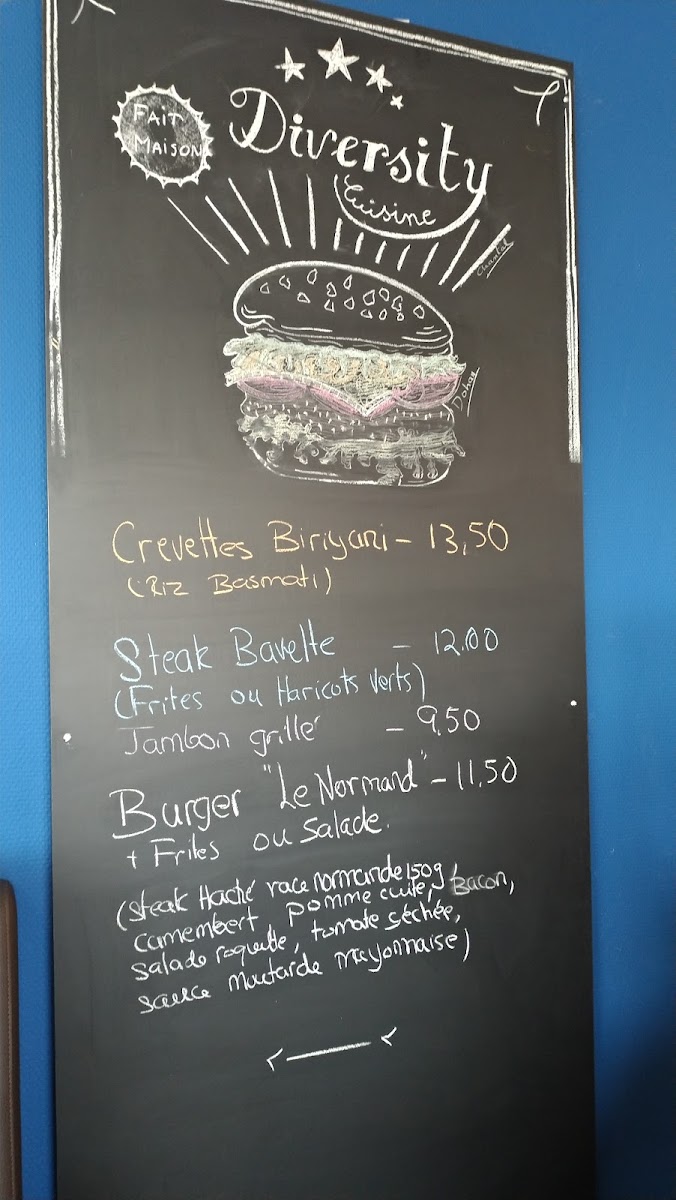 FAIT
MAISON
Diversity
Cuisine
Chantal
Dahan
Crevettes Biriyani - 13,50
(Riz Basmati)
Steak Bavette - 12.00
(Frites ou Haricots verts)
Jambon grillé - 9.50
Burger "Le Normand" - 11.50
+ Frites ou Salade.
(Steak Haché race normande 150g,
camembert, pomme cuite, Bacon,
salade roquette, tomate séchée,
sauce moutarde mayonnaise)